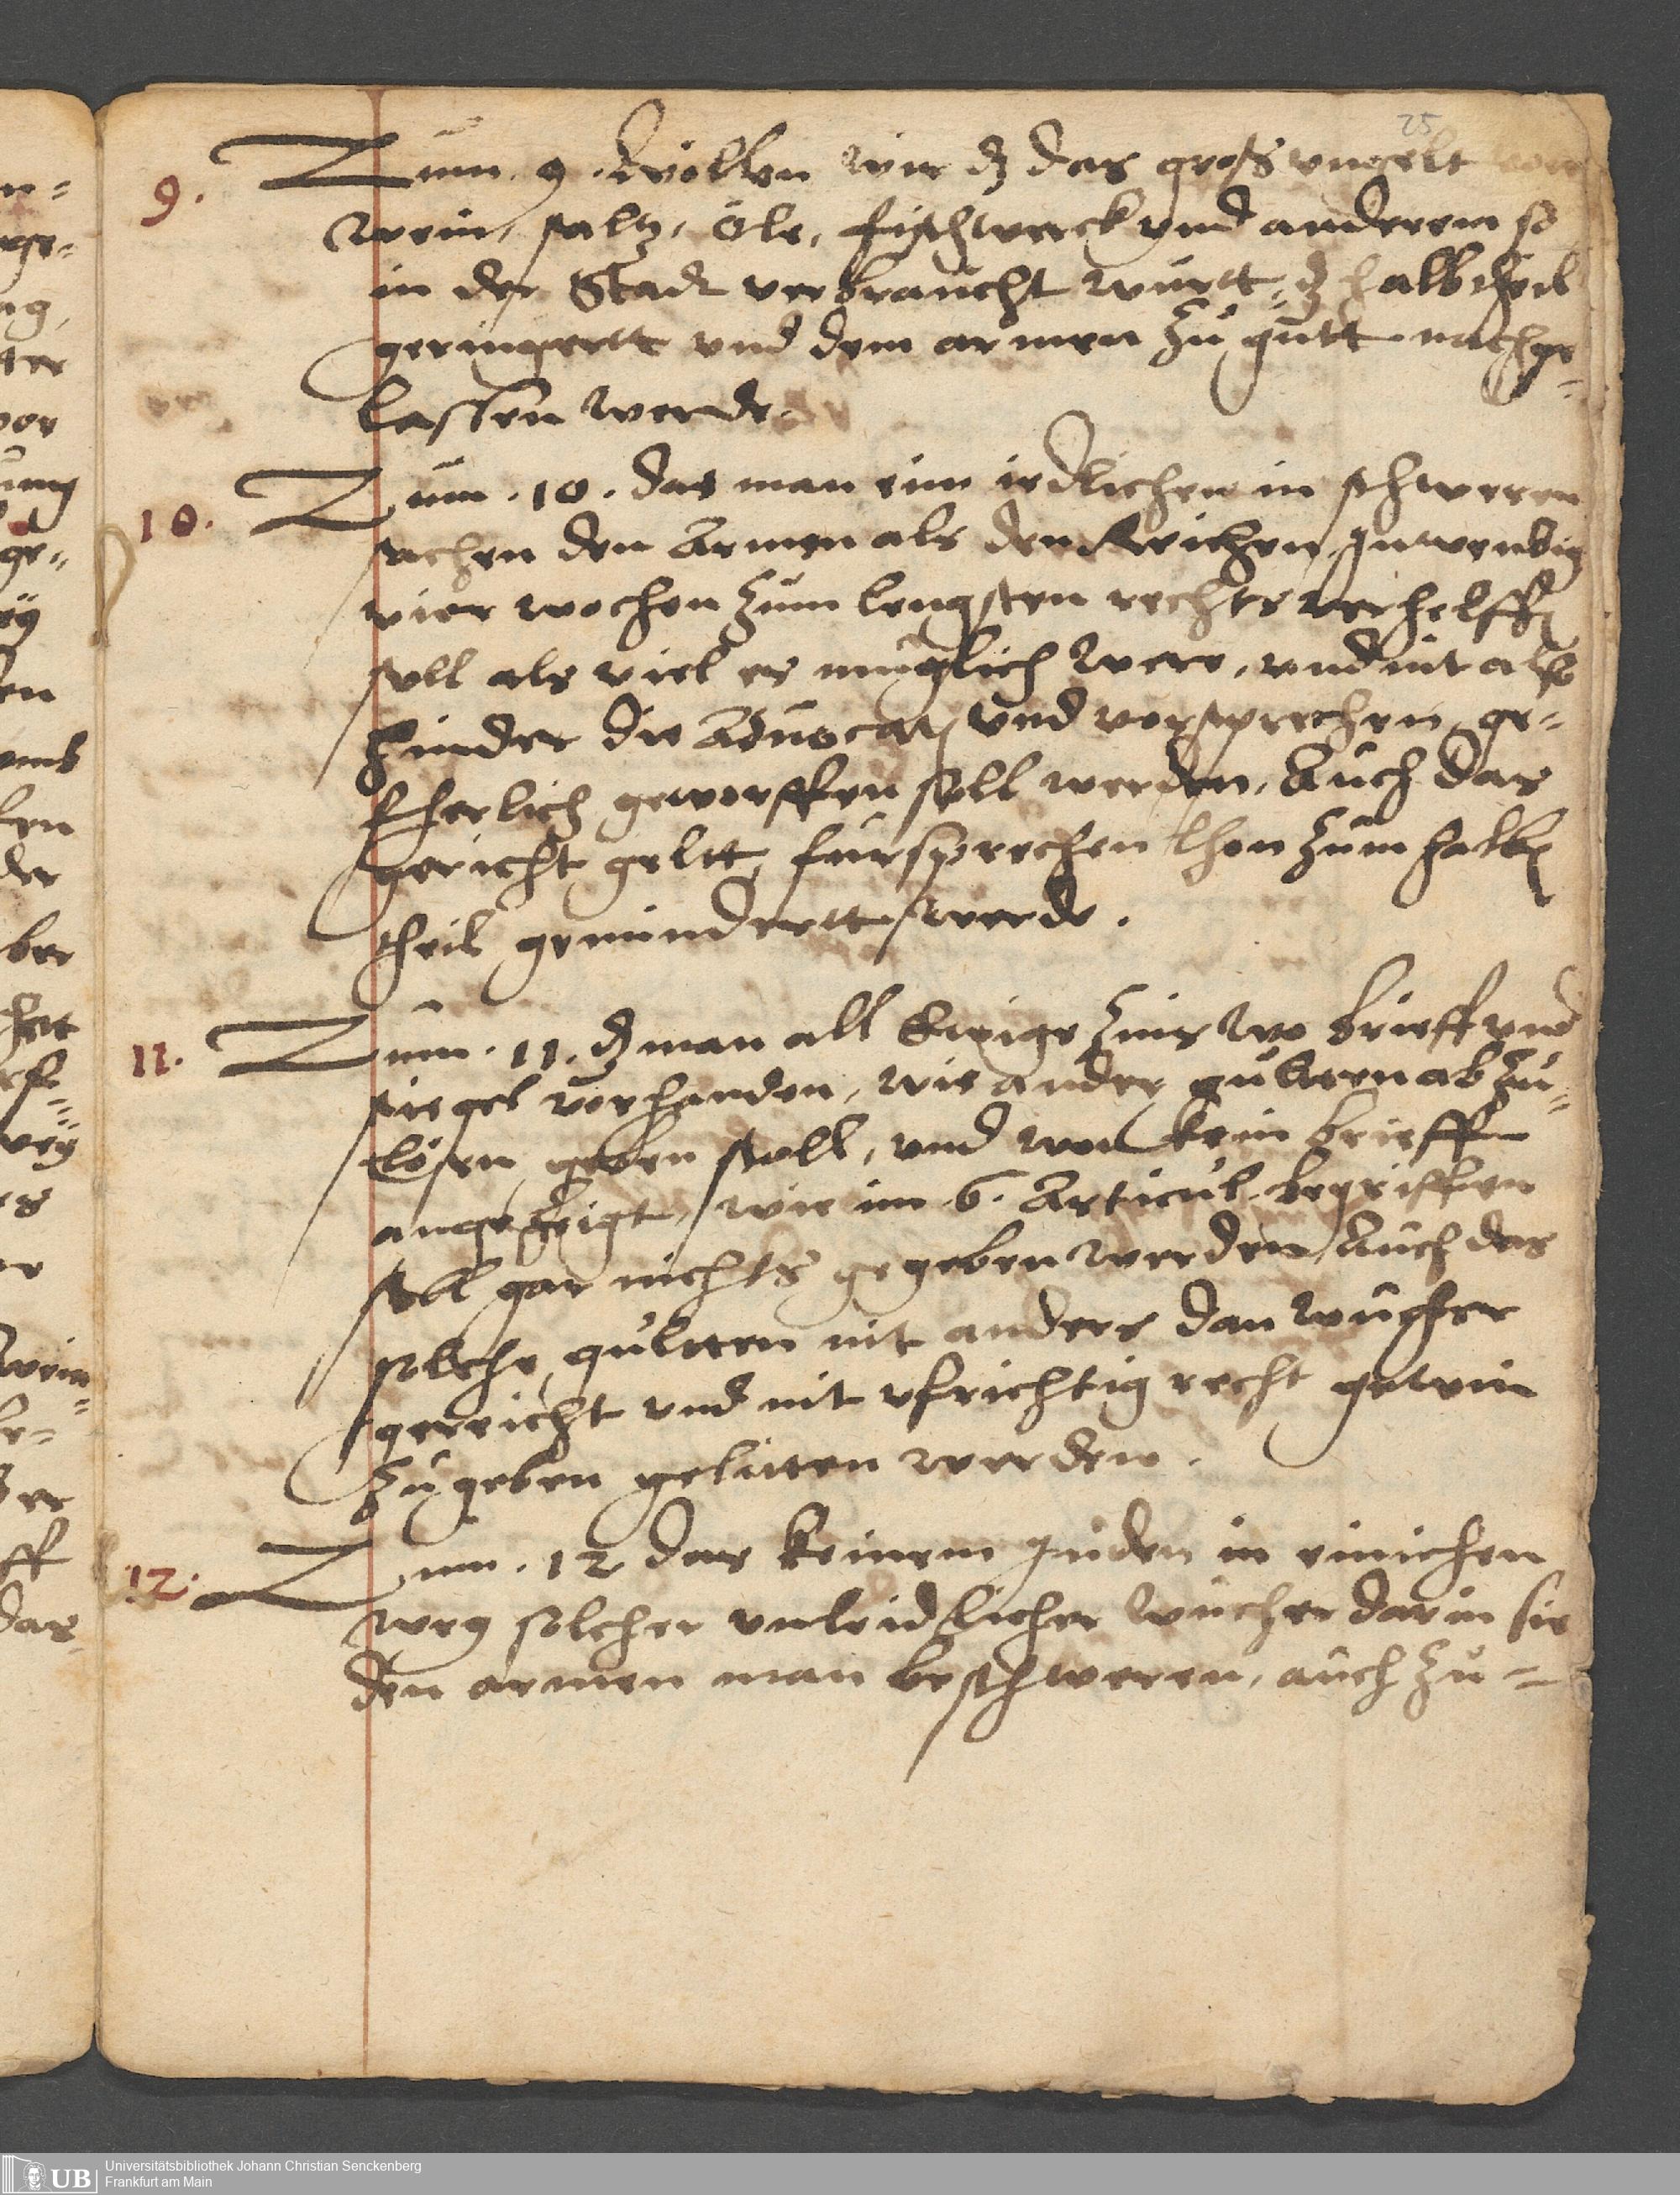 25
9. Zum .9. wöllen wir dz das groß ungelt von
wein, saltz, öle, fischwerck vnd anderem so
in der Stadt verbraucht württ, dz halbtheil
geringertt vnd dem armen zu gutt nachge-
lassen werde.
10. Zum .10. das man eim iedlichen in schweren
sachen den Armen als den Reichen, Inwendig
vier wochen zum lengsten rechts verhelffen
soll als viel es müglich were, vnd nit also
hinder die Aduocaten vnd vorsprechen ge-
fherlich geworffen soll werden. Auch das
gericht geltt, fürsprechen lhon zum halben
theil geminderttt werde.
11. Zum .11. dz man all Ewige Zins wo brieff vnd
siegel vorhanden, wie ander gulten abzu-
lösen geben soll, vnd wo kein brieff
angezeigt, wie im 6. Articul begriffen
soll gar nichts gegeben werden, Auch das
solche gultten nit anders dan wucher
gereicht vnd nit vfrichtig recht gewin
zu geben gelitten werden.
12. Zum .12 das keinem Juden in einichen
weg solcher vnleidlicher wucher darin sie
den armen man beschweren, auch zu-
UB Universitätsbibliothek Johann Christian Senckenberg
Frankfurt am Main